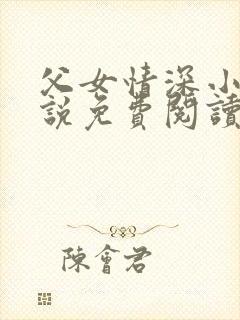 父女情深小
說免費閱讀
陳會君